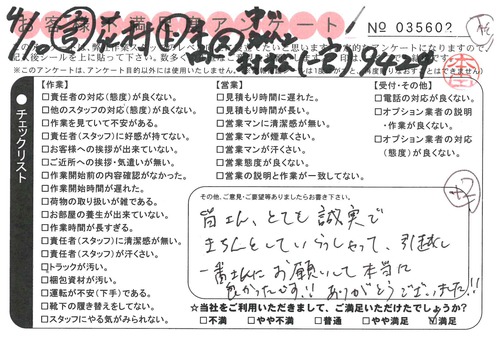 お客様不満足度アンケート
No 035602
【作業】
□責任者の対応(態度)が良くない。
□他のスタッフの対応(態度)が良くない。
□作業を見ていて不安がある。
□責任者(スタッフ)に好感が持てない。
□お客様への挨拶が出来ていない。
□ご近所への挨拶・気遣いが無い。
□作業開始前の内容確認がなかった。
□作業開始時間が遅れた。
□荷物の取り扱いが雑である。
□お部屋の養生が出来ていない。
□作業時間が長すぎる。
□責任者(スタッフ)に清潔感が無い。
□責任者(スタッフ)が汗くさい。
□トラックが汚い。
□梱包資材が汚い。
□運転が不安(下手)である。
□靴下の履き替えをしてない。
□スタッフにやる気がみられない。
【営業】
□見積もり時間に遅れた。
□見積もり時間が長い。
□営業マンに清潔感が無い。
□営業マンが煙草くさい。
□営業マンが汗くさい。
□営業態度が良くない。
□営業の説明と作業が一致してない。
【受付・その他】
□電話の対応が良くない。
□オプション業者の説明
・作業が良くない。
□オプション業者の対応
(態度)が良くない。
チェックリスト
その他、ご意見・ご要望等ありましたらお書き下さい。
皆さん、とても誠実で
きちんとしていらっしゃって、引越し
一番さんにお願いして本当に
良かったです!! ありがとうございました!!
☆当社をご利用いただきまして、ご満足いただけたでしょうか?
□不満 □やや不満 □普通 □やや満足 ☑満足